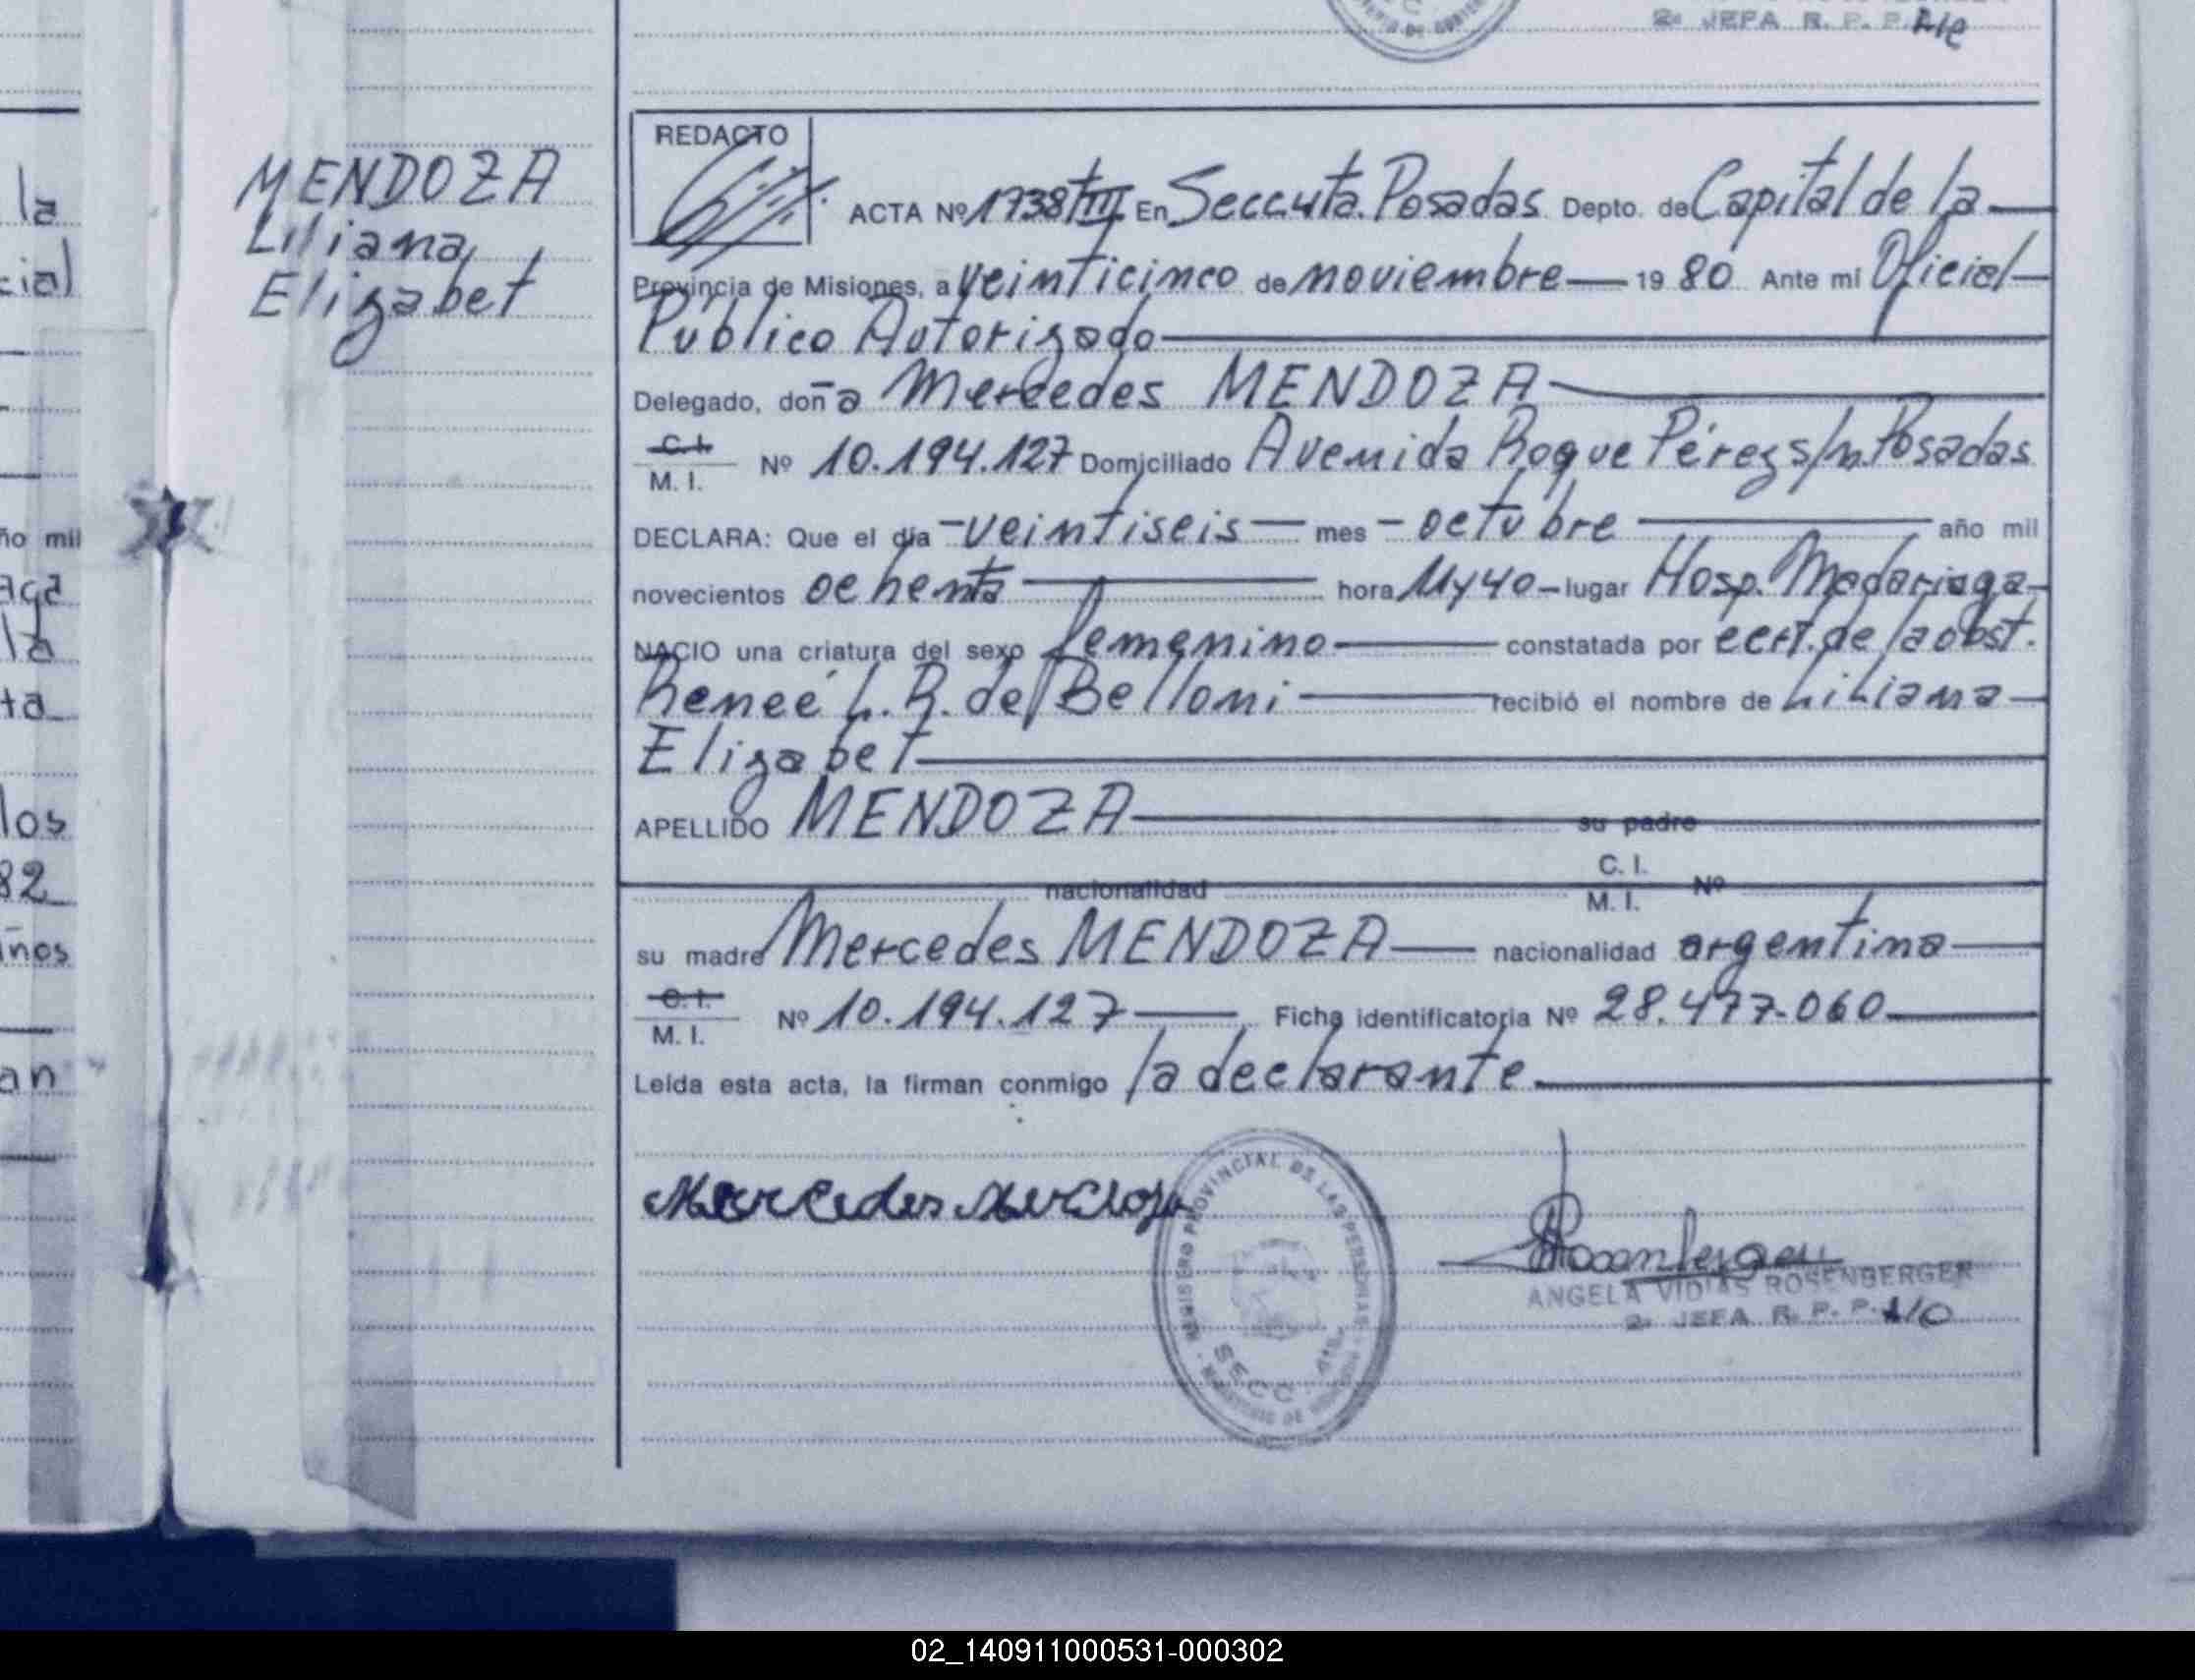 2a JEFA R. P. P.
la
cial
ño mil
aga
la
ta
los
82
ños
an
MENDOZA
Liliana
Elizabet
REDACTO
ACTA Nº 1738 tIII En Secc 4ta. Posadas Depto. de Capital de la
Provincia de Misiones, a veinticinco de noviembre 19 80 Ante mi Oficial
Público Autorizado
Delegado, doña Mercedes MENDOZA
C.I.
M. I. Nº 10.194.127 Domiciliado Avenida Roque Pérez s/n. Posadas
DECLARA: Que el día - veintiseis - mes - octubre año mil
novecientos ochenta hora 11 y 40 - lugar Hosp. Madariaga
NACIO una criatura del sexo femenino constatada por cert. de la obst.
Reneé L. R. de Belloni recibió el nombre de Liliana
Elizabet
APELLIDO MENDOZA su padre
nacionalidad C. I. M. I. Nº
su madre Mercedes MENDOZA nacionalidad argentina
C. I.
M. I. Nº 10.194.127 Ficha identificatoria Nº 28.477.060
Leída esta acta, la firman conmigo la declarante
Mercedes Mendoza
REGISTRO PROVINCIAL DE LAS PERSONAS
SECC. 4ta.
MINISTERIO DE GOBIERNO
Rosenberger
ANGELA VIDIAS ROSENBERGER
2a JEFA R. P. P. A/C
02_140911000531-000302